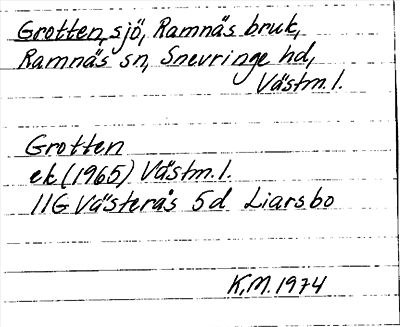 Grotten, sjö, Ramnäs bruk,
Ramnäs sn, Snevringe hd,
Västm. l.
Grotten
ek (1965) Västm. l.
11G Västerås 5d Liarsbo
K.M. 1974